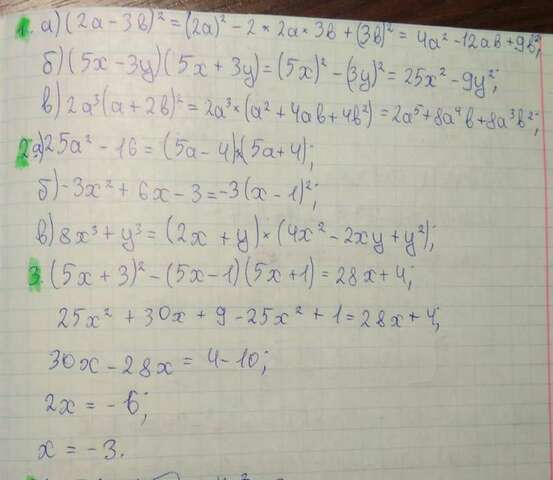 1. а) (2a - 3b)² = (2a)² - 2 × 2a × 3b + (3b)² = 4a² - 12ab + 9b²;
б) (5x - 3y)(5x + 3y) = (5x)² - (3y)² = 25x² - 9y²;
в) 2a³(a + 2b)² = 2a³ × (a² + 4ab + 4b²) = 2a⁵ + 8a⁴b + 8a³b²;
2. а) 25a² - 16 = (5a - 4) × (5a + 4);
б) -3x² + 6x - 3 = -3(x - 1)²;
в) 8x³ + y³ = (2x + y) × (4x² - 2xy + y²);
3. (5x + 3)² - (5x - 1)(5x + 1) = 28x + 4;
25x² + 30x + 9 - 25x² + 1 = 28x + 4;
30x - 28x = 4 - 10;
2x = -6;
x = -3.